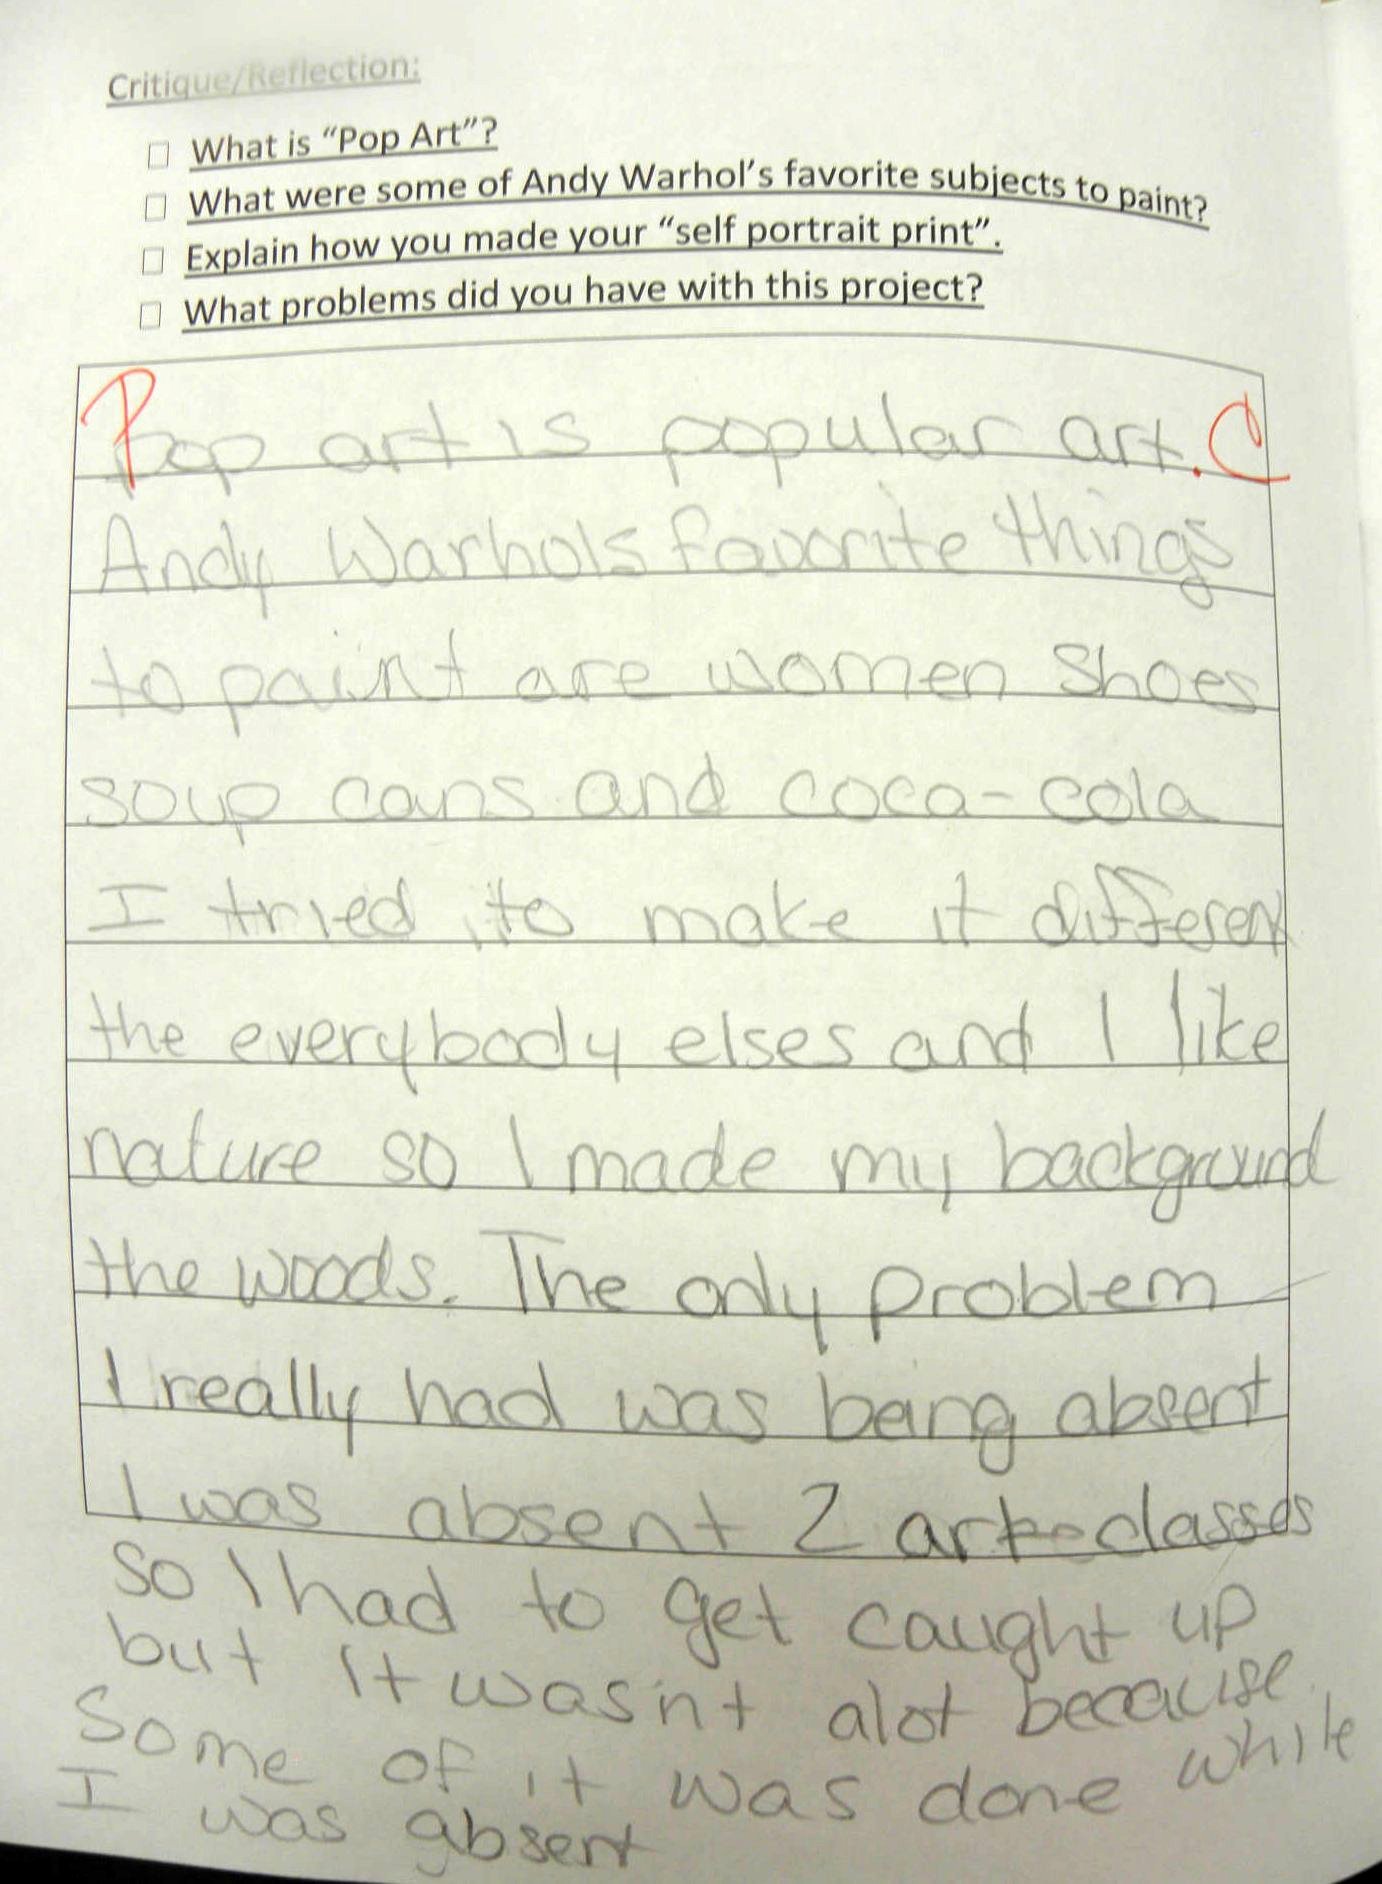 Critique/Reflection:
☐ What is “Pop Art”?
☐ What were some of Andy Warhol’s favorite subjects to paint?
☐ Explain how you made your “self portrait print”.
☐ What problems did you have with this project?
Pop art is popular art. C
Andy Warhols favorite things
to paint are women shoes
soup cans and coca-cola
I tried to make it different
the everybody elses and I like
nature so I made my background
the woods. The only problem
I really had was being absent
I was absent 2 art classes
so I had to get caught up
but it wasn't alot because
Some of it was done while
I was absent